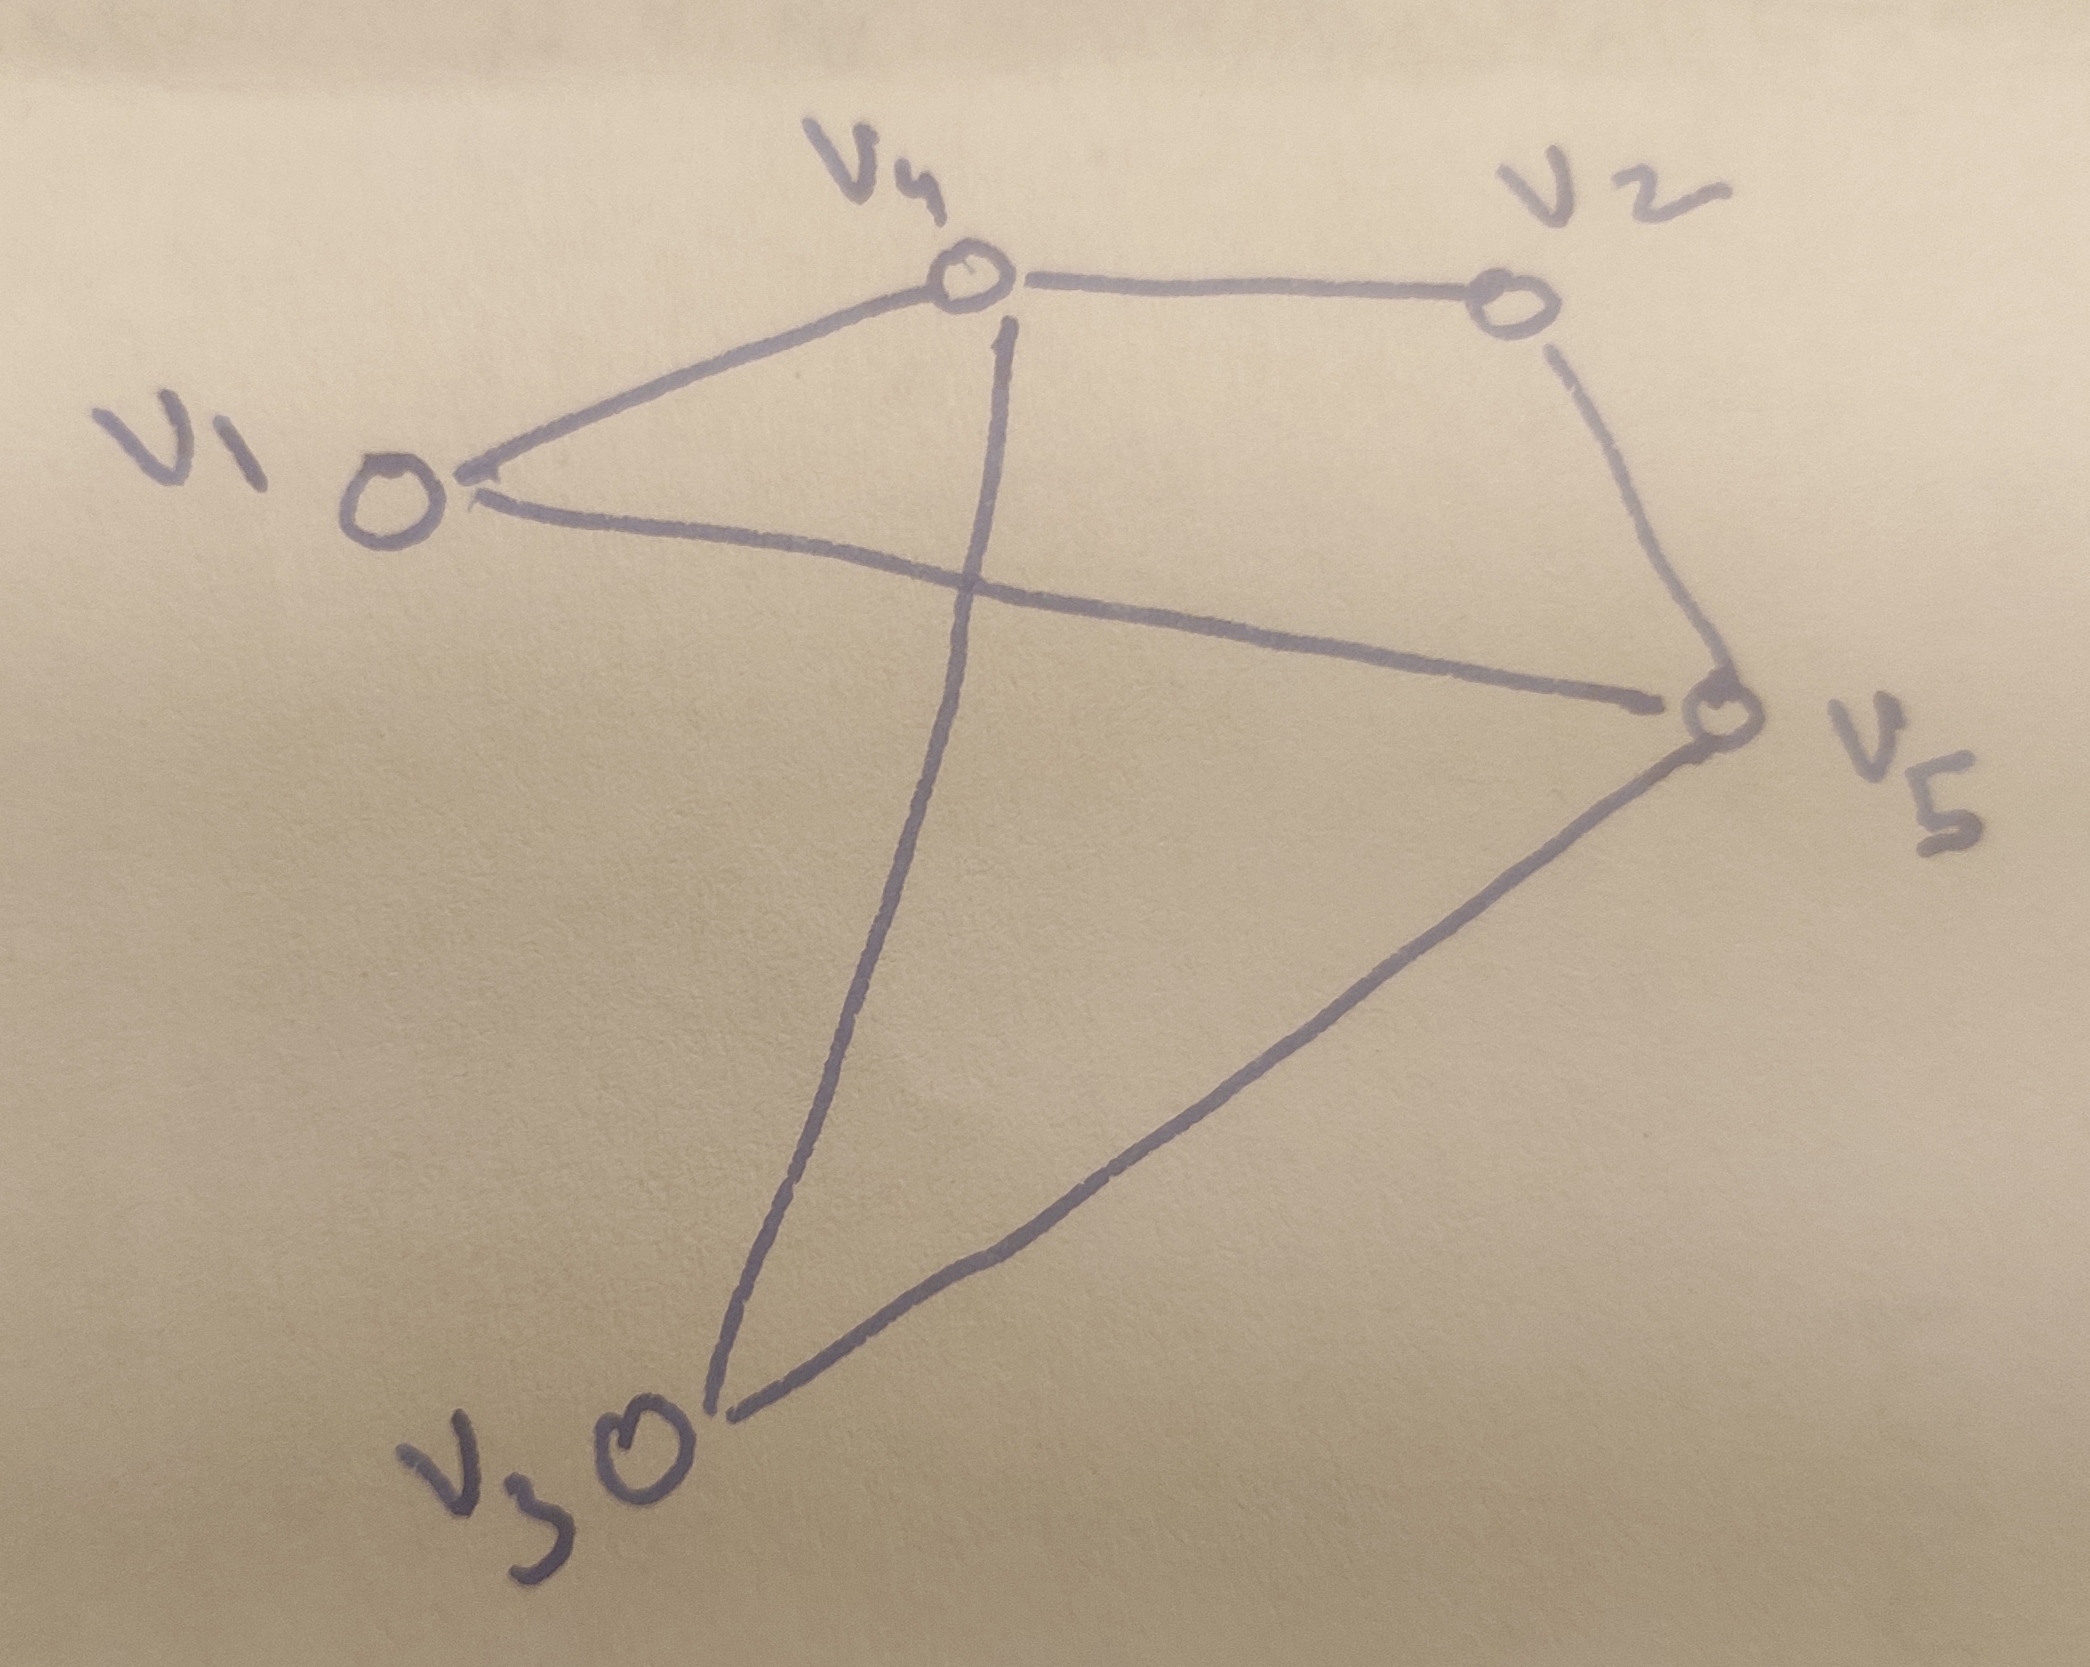 V4
V2
V1
V5
V3